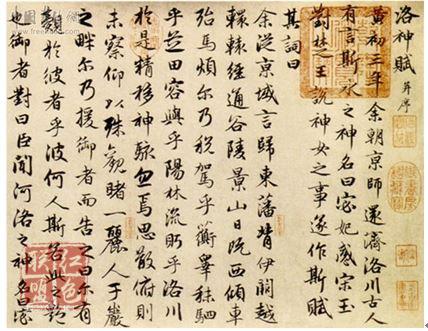 洛神賦 并序
黃初三年余朝京師還濟洛川古人
有言斯水之神名曰宓妃感宋玉
對楚王說神女之事遂作斯賦
其詞曰
余從京域言歸東藩背伊闕越
轘轅經通谷陵景山日既西傾車
殆馬煩尔乃稅駕乎蘅皋秣駟
乎芝田容與乎陽林流眄乎洛川
於是精移神駭忽焉思散俯則
未察仰以殊觀睹一麗人于巖
之畔尔乃援御者而告之曰尔有
觀於彼者乎彼何人斯若此之艷
也御者對曰臣聞河洛之神名曰宓
红色
联盟